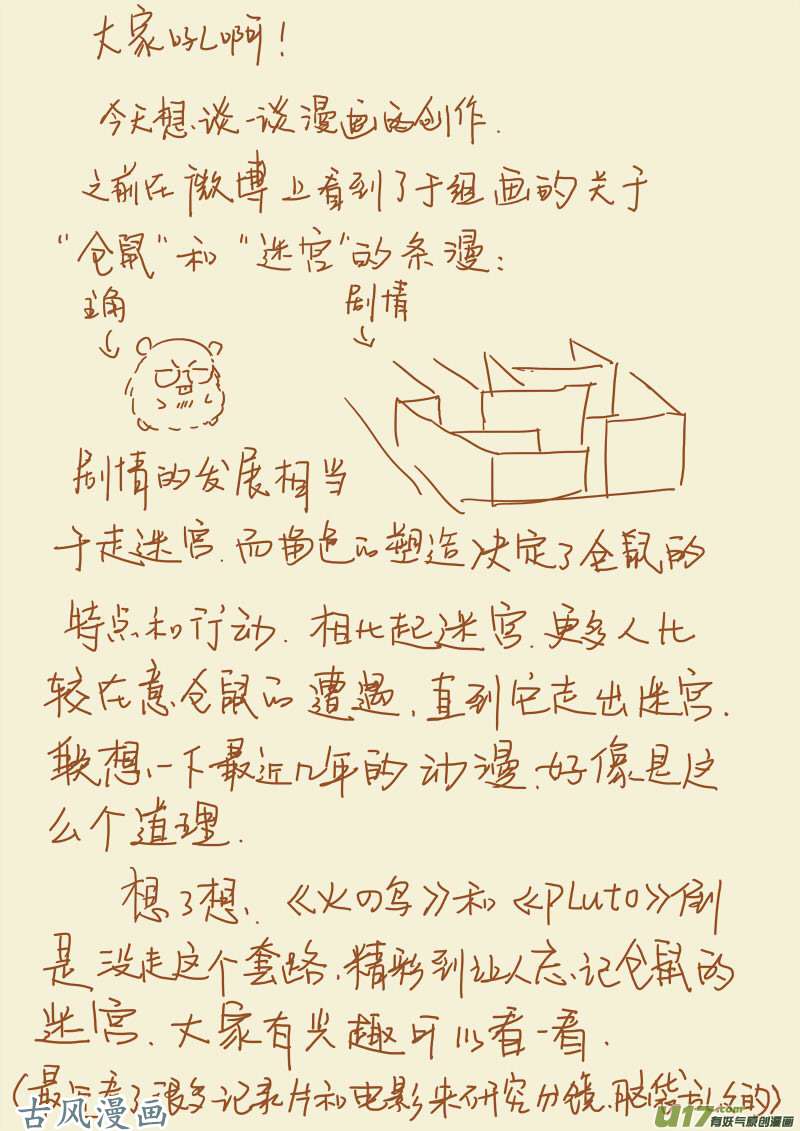 大家好啊！
今天想谈一谈漫画的创作.
之前在微博上看到了于组画的关于
“仓鼠”和“迷宫”的条漫：
主角
剧情
剧情的发展相当
于走迷宫.而角色的塑造决定了仓鼠的
特点和行动.相比起迷宫.更多人比
较在意仓鼠的遭遇.直到它走出迷宫.
联想一下最近几年的动漫.好像是这
么个道理.
想了想、《火の鸟》和《PLuto》倒
是没走这个套路.精彩到让人忘记仓鼠的
迷宫.大家有兴趣可以看一看.
(最近看了很多记录片和电影来研究分镜.脑袋 的)
古风漫画
u17.com
有妖气原创漫画